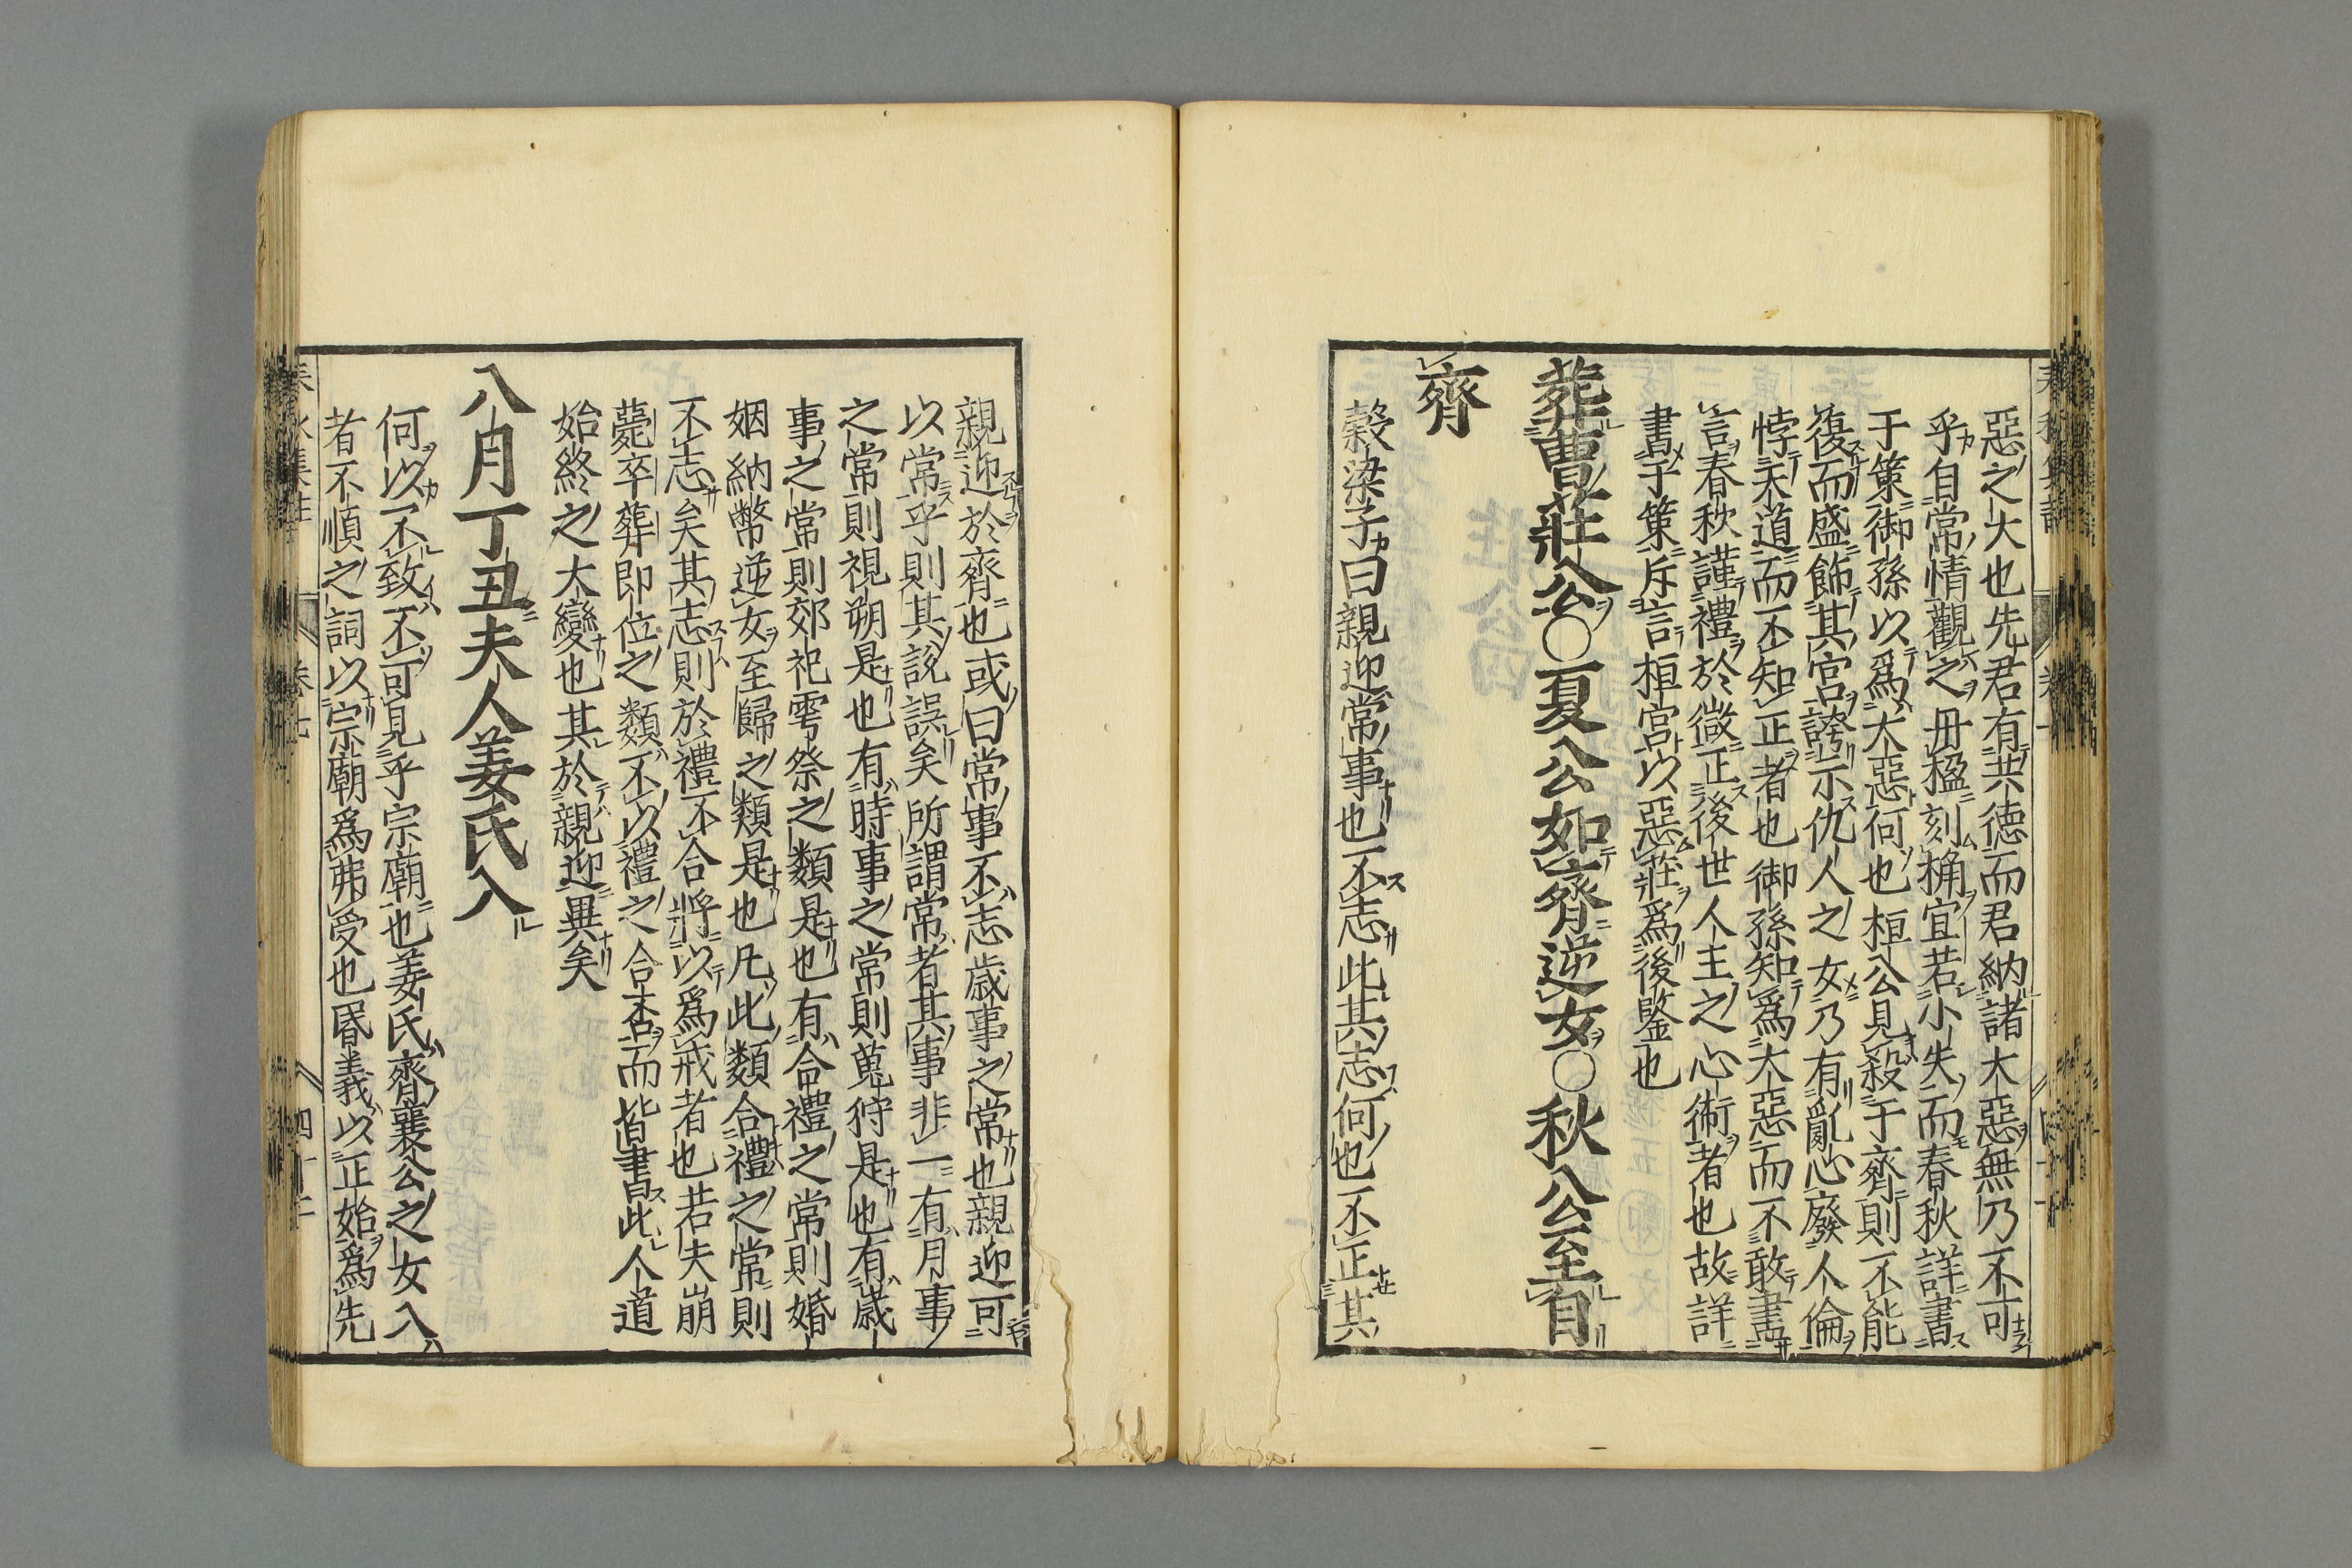 惡之大也先君有共德而君納諸大惡無乃不可
乎自常情觀之丹楹刻桷宜若小失而春秋詳書
于策御孫以爲大惡何也桓公見殺于齊則不能
復而盛飾其宮誇示仇人之女乃有亂心廢人倫
悖天道而不知正者也御孫知爲大惡而不敢盡
言春秋謹禮於微正後世人主之心術者也故詳
書于策斥言桓宮以惡莊爲後鑒也
葬曹莊公〇夏公如齊逆女〇秋公至自
齊
穀梁子曰親迎常事也不志此其志何也不正其
親迎於齊也或曰常事不志歲事之常也親迎可
以常乎則其說誤矣所謂常者其事非一有月事
之常則視朔是也有時事之常則蒐狩是也有歲
事之常則郊祀雩祭之類是也有合禮之常則婚
姻納幣逆女至歸之類是也凡此類合禮之常則
不志矣其志則於禮不合將以爲戒者也若夫崩
薨卒葬即位之類不以禮之合否而皆書此人道
始終之大變也其於親迎異矣
八月丁丑夫人姜氏入
何以不致不可見乎宗廟也姜氏齊襄公之女入
者不順之詞以宗廟爲弗受也昏義以正始爲先
卷七